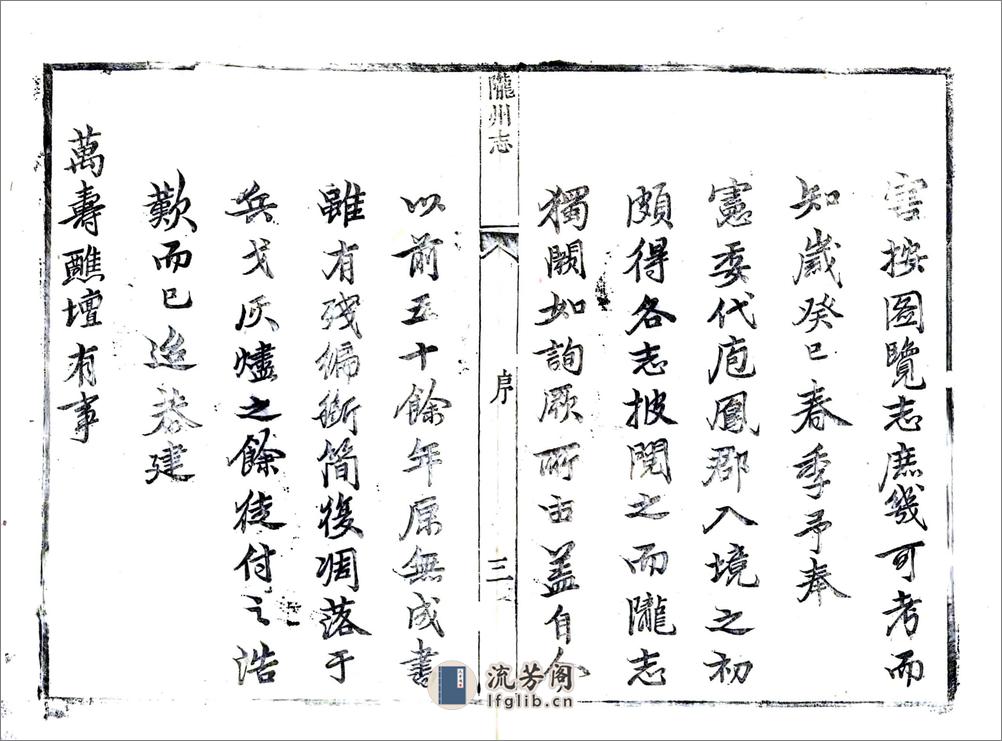 害按圖覽志庶幾可考而
知歲癸巳春季予奉
憲委代庖鳳郡入境之初
頗得各志披閱之而隴志
獨闕如詢厥所由蓋自今
隴州志
序
三
以前五十餘年原無成書
雖有殘編斷簡復凋落于
兵戈灰燼之餘徒付之浩
歎而已迨恭建
萬壽醮壇有事
流芳阁
lfglib.cn